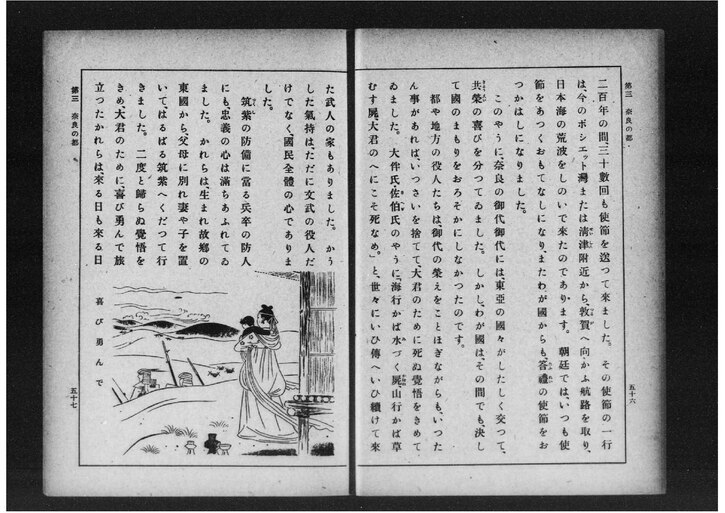 第三　奈良の都
五十六
二百年の間、三十數回も使節を送つて來ました。その使節の一行
は、今のポシエット灣または淸津附近から、敦賀へ向かふ航路を取り、
日本海の荒波をしのいで來たのであります。朝廷では、いつも使
節をあつくおもてなしになり、またわが國からも、答禮の使節をお
つかはしになりました。
このやうに、奈良の御代御代には、東亞の國々がしたしく交つて、
共榮の喜びを分つてゐました。しかし、わが國は、その間でも、決し
て國のまもりをおろそかにしなかつたのです。
都や地方の役人たちは、御代の榮えをことほぎながらも、いつた
ん事があれば、いつさいを捨てて、大君のために死ぬ覺悟をきめて
ゐました。大伴氏佐伯氏のやうに、「海行かば水づく屍、山行かば草
むす屍、大君のへにこそ死なめ。」と、世々にいひ傳へいひ續けて來
第三　奈良の都
五十七
た武人の家もありました。かう
した氣持は、ただに文武の役人だ
けでなく、國民全體の心でありま
した。
筑紫の防備に當る兵卒の防人
にも、忠義の心は滿ちあふれてゐ
ました。かれらは、生まれ故鄕の
東國から、父母に別れ妻や子を置
いて、はるばる筑紫へくだつて行
きました。二度と歸らぬ覺悟を
きめ、大君のために、喜び勇んで旅
立つたかれらは、來る日も來る日
喜び勇んで